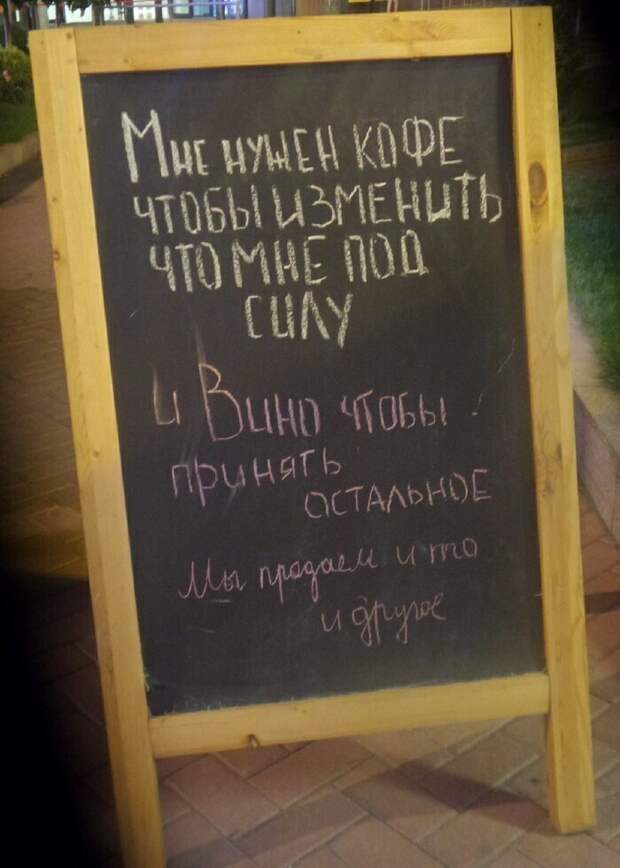 Мне нужен кофе
чтобы изменить
что мне под
силу
и Вино чтобы
принять
остальное
Мы продаем и то
и другое